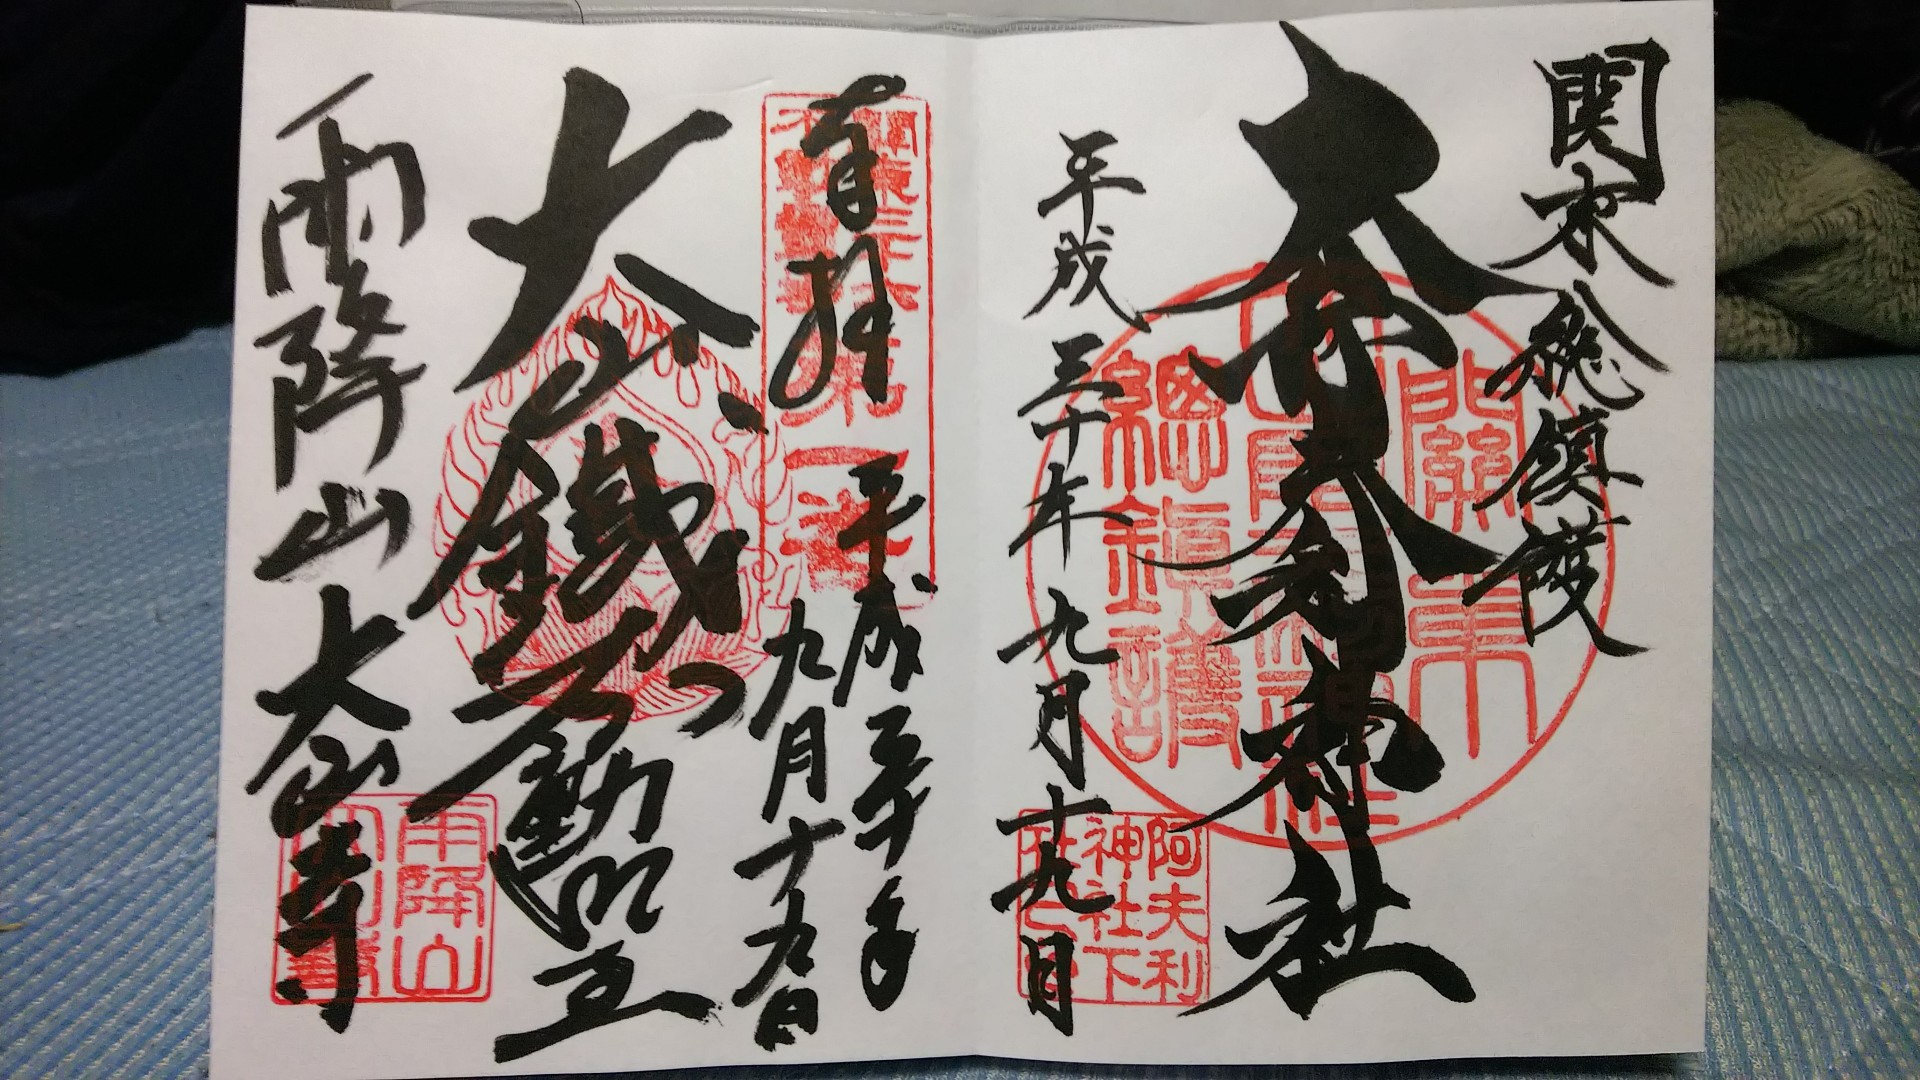 関東総鎮護
大山阿夫利神社
平成三十年九月十九日
關東
總鎮護
阿夫利
神社下
奉拝
平成三十年
九月十九日
第一番
大山鐵不動明王
雨降山大山寺
雨降山